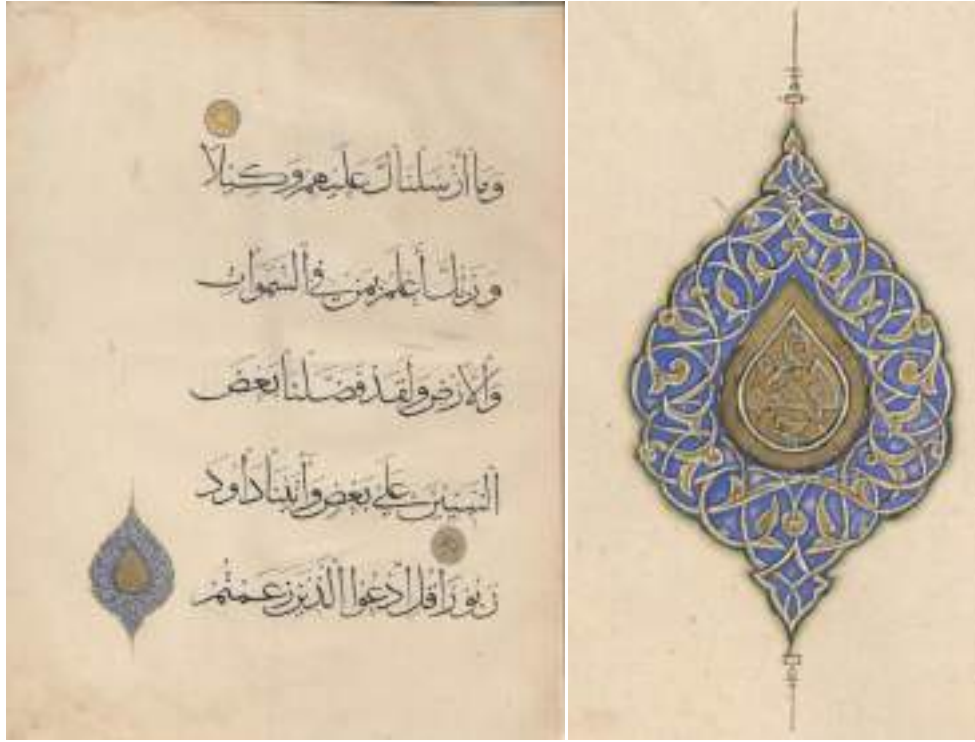 وَمَا أَرْسَلْنَاكَ عَلَيْهِمْ وَكِيلًا
وَرَبُّكَ أَعْلَمُ بِمَنْ فِي السَّمَوَاتِ
وَالْأَرْضِ وَلَقَدْ فَضَّلْنَا بَعْضَ
النَّبِيِّينَ عَلَى بَعْضٍ وَآتَيْنَا دَاوُدَ
زَبُورًا قُلِ ادْعُوا الَّذِينَ زَعَمْتُمْ